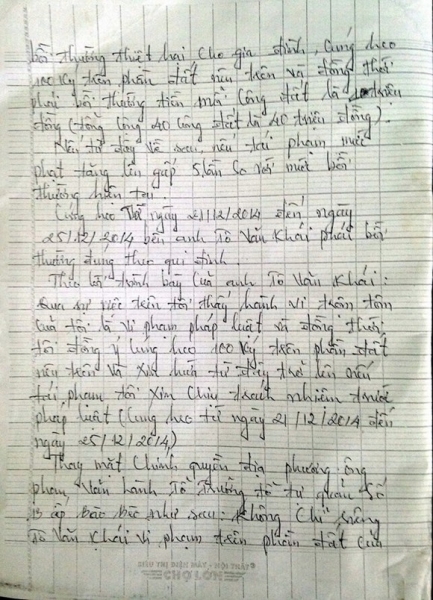 bồi thường thiệt hại cho gia đình, cúng heo
100 ký trên phần đất nêu trên và đồng thời
phải bồi thường tiền mỗi công đất là triệu
đồng (tổng cộng 40 công đất là 40 triệu đồng).
Nếu từ đây về sau nếu tái phạm mức
phạt tăng lên gấp 5 lần so với mức bồi
thường hiện tại.
Cúng heo Từ ngày 21/12/2014 đến ngày
25/12/2014 bên anh Tô Văn Khái phải bồi
thường đúng theo qui định.
Theo lời trình bày của anh Tô Văn Khái:
Qua sự việc trên tôi thấy hành vi trộm tôm
của tôi là vi phạm pháp luật và đồng thời
tôi đồng ý cúng heo 100 ký trên phần đất
nêu trên và xin hứa từ đây trở lên nếu
tái phạm tôi xin chịu trách nhiệm trước
pháp luật (Cúng heo từ ngày 21/12/2014 đến
ngày 25/12/2014)
Thay mặt chính quyền địa phương ông
phạm Văn hành Tổ trưởng tổ tự quản số
13 ấp Bào Bèo như sau: Không chỉ riêng
Tô Văn Khái vi phạm trên phần đất của
CHỢ LỚN